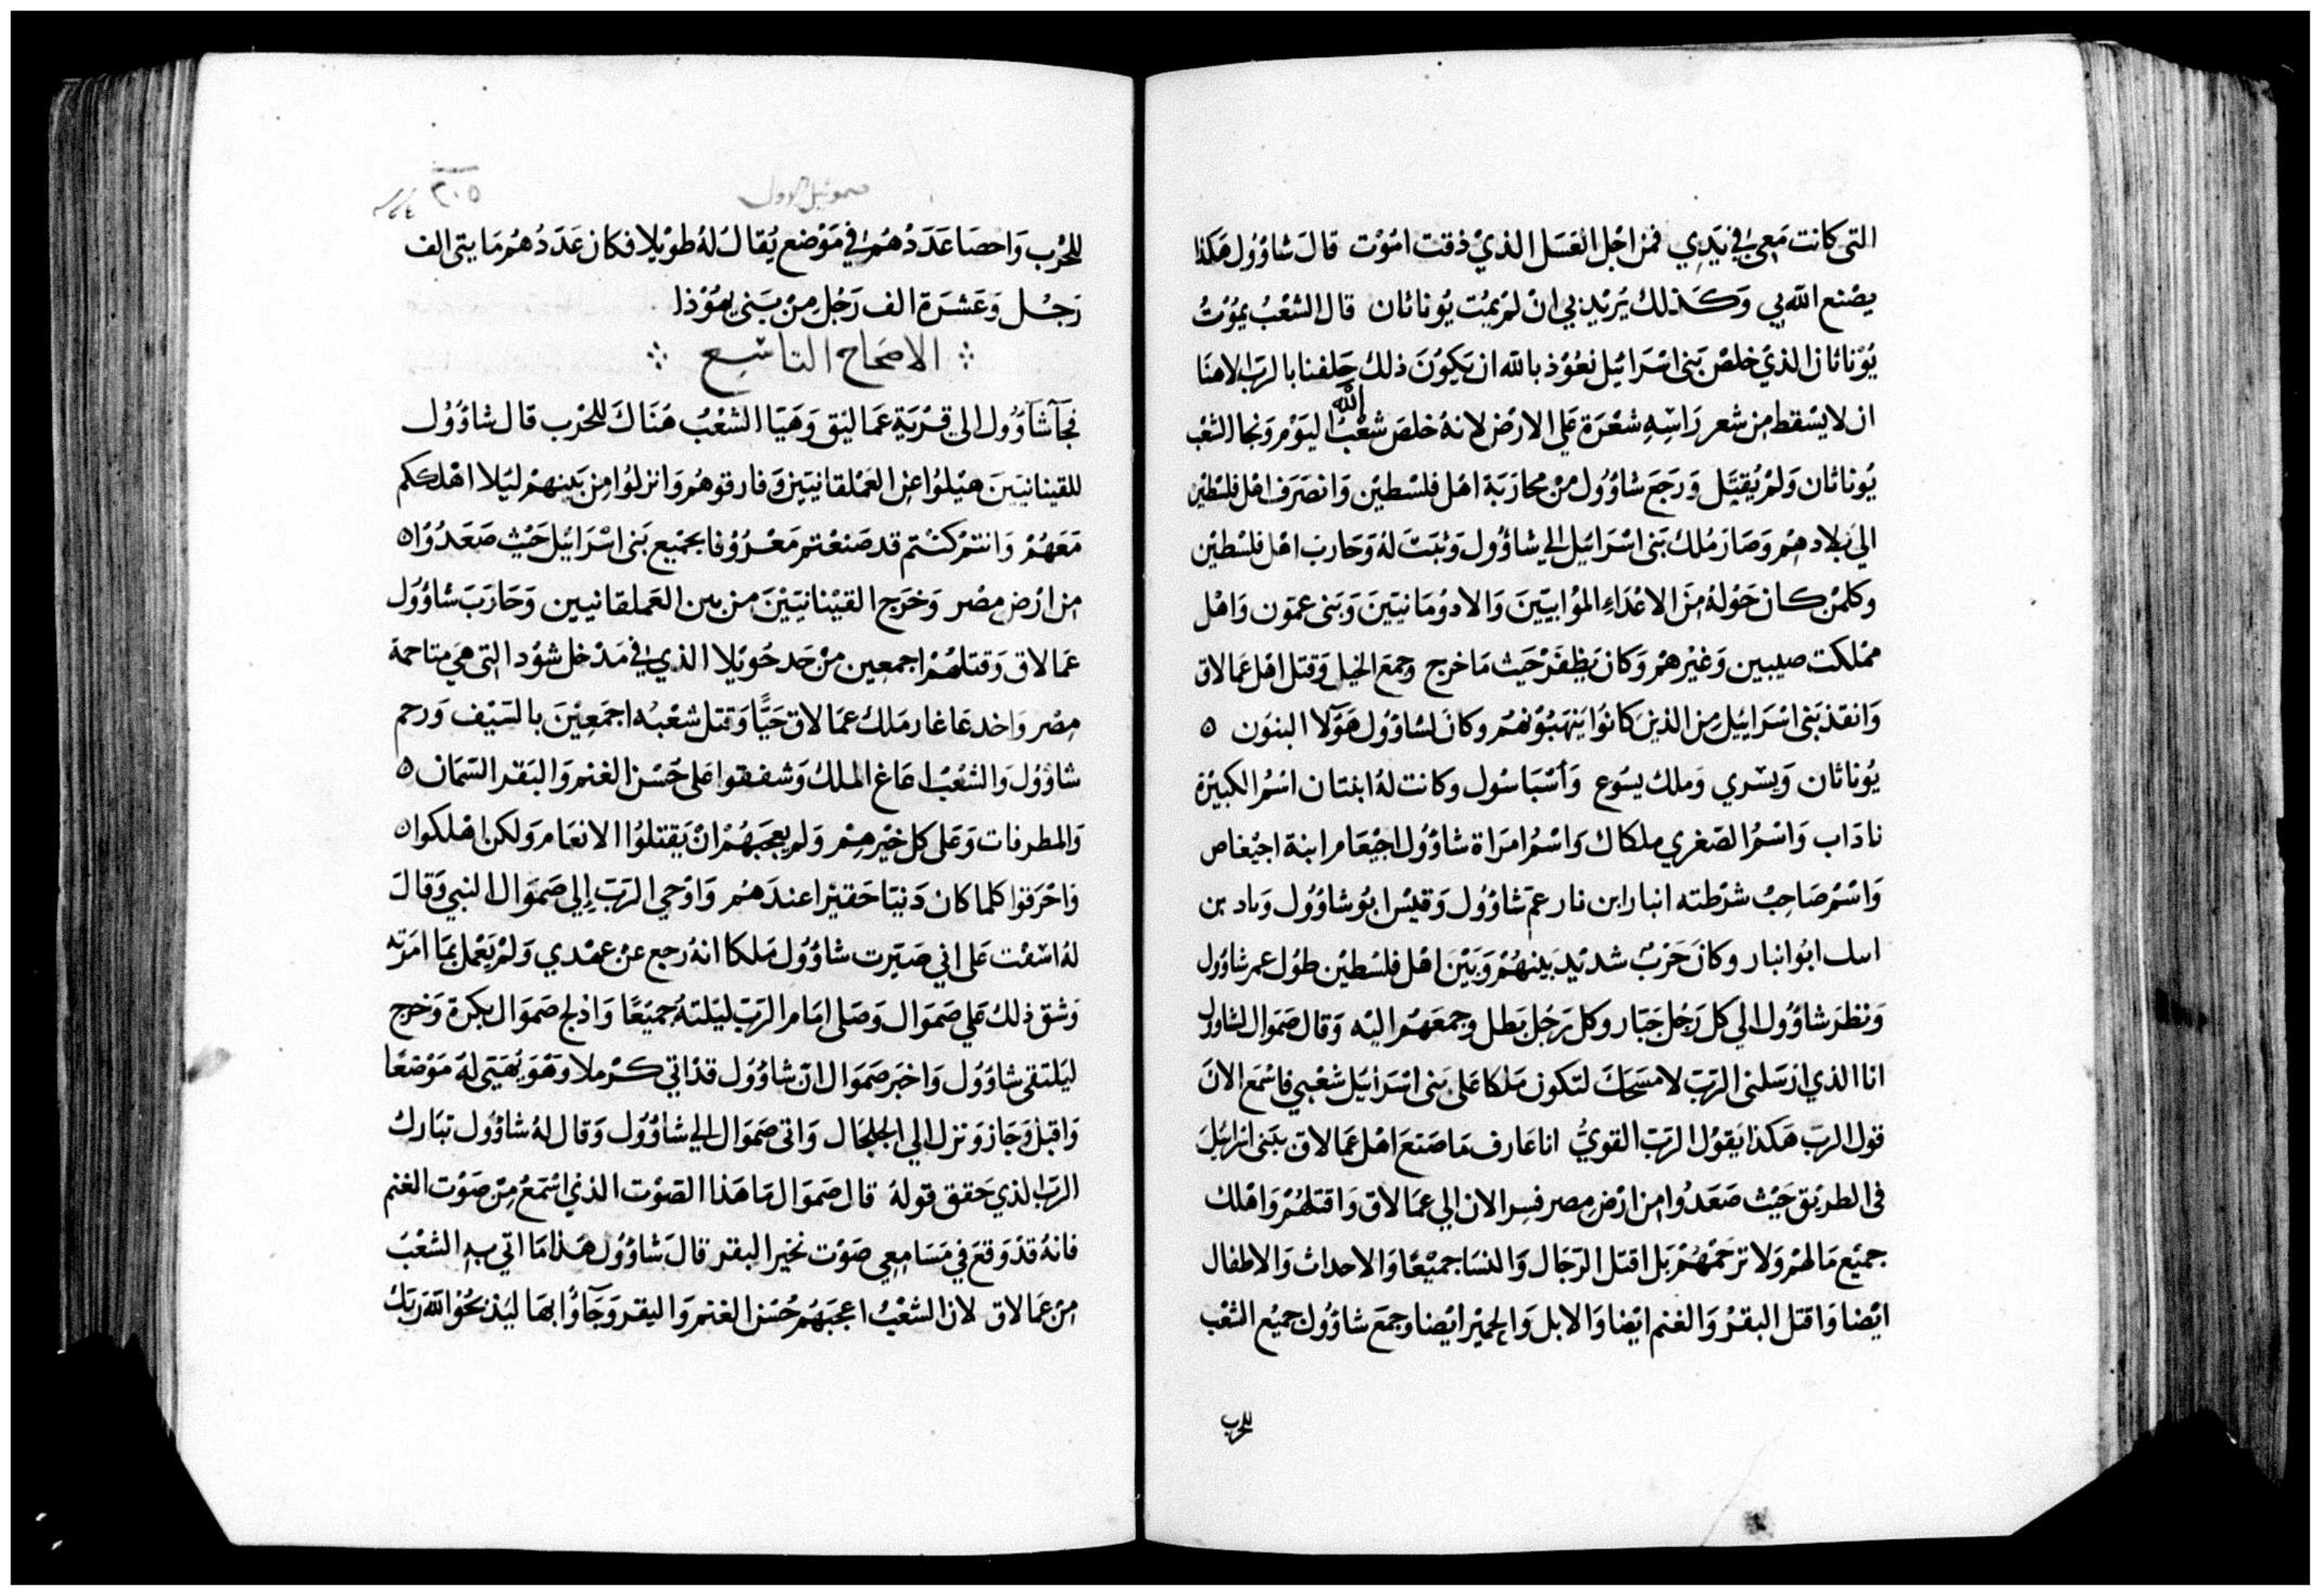 التى كانت مَعى في يَدِي فمن اجْل العَسَل الذيْ ذقت امُوْت قالَ شاوُول هَكذا
يصْنع الله بي وَكَذلك يَزيد بي انْ لمْ يمُت يُوناثان قال الشعْبُ يمُوْتُ
يُوْناثان الذيْ خلصْ بَنى اسْرَائيل نعُوْذ بالله ان يَكوُنَ ذلك حَلفنا بالرَب الاهنَا
ان لا يسْقط مِن شعر رَاسِهِ شعْرَة عَلى الارْض لانهُ خلصَ شعْبُ الله اليَوْم وَنجا الشعْب
يُوناثان وَلمْ يُقتَل وَرَجَعَ شاوُوُل منْ محارَبَة اهْل فلسْطيْن وَانصَرَف اهْل فلسْطيْن
الي بلادهِمْ وَصَارَ مُلك بَنى اسْرَائيل الي شاوُول وَثبَتَ لهُ وَحَارب اهْل فلسْطيْن
وكلمنْ كان حَوْلهُ مِنَ الاعْدَاءِ الموْابييَن وَالادوُمَانييَن وَبَنى عمّون وَاهْل
ممْلكت صيبين وَغيْرهمْ وَكان يَظفَرْ حَيث مَا خرج وجمعَ الخيل وَقتل اهْل عَمالاق
وَانقذ بَنى اسْرَاييْل مِن الذينَ كانوُا يَنهَبُوْنهُم وكانَ لشاوُوُل هَوْلا البنوَن ٥
يُوناثان وَيسْري وَملك يسوَع وَاسْبَاسُول وكانت لهُ ابنتان اسْمُ الكبيْرة
نادَاب وَاسْمُ الصَغري ملكاك وَاسْمُ امرَاة شاوُوُل اجيْعَام ابنة اجيْعاص
وَاسْمُ صَاحِبُ شرْطته انبار ابن نار عمّ شاوُوُل وَقيْس ابُو شاوُوُل وَباد بن
ابُوا انبار وكانَ حَرْبٌ شديْد بَينهُمْ وَبَيْنَ اهْل فلسْطيْن طوُل عمر شاوُول
وَنظرَ شاوُول الي كل رَجُل جَبّار وكل رَجُل بَطل وجمعَهُم اليْه وَقال صَموَال لشاوُول
انا الذي ارْسَلنى الرَبّ لامسَحَكَ لتكون مَلكا عَلى بَنى اسْرَائيل شعْبي فاسْمَع الانَ
قول الربّ هَكذا يَقوُل الرَبّ القويُّ انا عَارف مَا صَنعَ اهْل عَمالاق ببَنى اسْرائيل
فى الطريْق حَيْث صَعَدوُا مِن ارْض مِصر فسِر الان الي عمَالاق وَاقتلهُمْ وَاهْلك
جميْع مَالهمْ وَلا ترْحَمْهُمْ بَل اقتل الرّجَال وَالنسَا جميْعًا وَالاحداث وَالاطفال
ايْضا وَاقتل البقرْ وَالغنم ايْضا وَالابل وَالحميْر ايْضا وجمعَ شاوُوُل جميْع الشعْب
للحرب
صموئيل الاول
٢٠٥
للحَرْب وَاحصَا عَدَدُهُم في مَوْضع يُقالُ لهُ طوْيلا فكان عَدَدُهُم مَايتى الف
رَجُل وَعَشرَة الف رَجُل مِنْ بَنى يهُوْذا
الاصَحَاح التاسِع
فجآ شآوُول الى قرْيَةِ عَماليْق وَهَيَا الشعْبُ هُنَاكَ للحَرْب قال شاوُوُل
للقينانييَنَ ميْلوُا عن العَمْلقانيَيْن وَفارقوهُم وَانزلوُا مِن بَينهمْ ليَلا اهْلككم
مَعَهُمْ وَانتمْ كنتم قد صَنعْتم مَعْرُوْفا بجميْع بَنى اسْرَائيْل حَيْث صَعَدُوْا ٥
مِن ارْض مِصْر وَخرَج القيْنانييْنَ من بين العَملقانيين وَحَارَبَ شاوُوَل
عَمالاق وَقتلهُمْ اجمعين منْ حَد حَوْيلا الذي في مَدْخل شوُد التى هيَ متاحمة
مِصْر وَاخد عَاغار مَلك عَمالاق حَيًّا وَقتل شعْبُه اجمَعِيْنَ بالسَيْف وَرحم
شاوُوُل وَالشعْبُ اعَاغ الملكُ وَشفقوا عَلى حَسْن الغنم وَالبَقر السّمَان ٥
وَالمطرفات وَعَلى كل خيْرهِمْ وَلم يعجبَهُمْ انْ يَقتلوُا الانعَام وَلكن اهْلكوا ٥
وَاحْرَقوا كلما كان دَنيّا حَقيْرا عندَهمْ وَاوْحي الرَبّ إلي صَموَال النبي وَقالَ
لهُ اسَفْت عَلى اني صَيّرت شاوُوُل مَلكا انهُ رجع عنْ عهْدي وَلمْ يَعْمل بمَا امَرته
وَشق ذلك عَلي صَموَال وَصَلى امَام الرَبّ ليَلتهُ جميَعًا وَادلج صَموَال بكرة وَخرج
ليَلتقى شاوُوُل وَاخبَر صَموَال انّ شاوُوُل قدْ اتي كرْملا وَهوَ يُهَيّى لهُ مَوْضعًا
وَاقبل وَجَاز وَنزل الي الجلجَال وَاتى صَموَال الي شاوُوُل وَقال لهُ شاوُوُل تبَارك
الرَب الذي حَقق قولهُ قال صَموَال مَا هَذا الصَوْت الذي اسْمَعُ مِنْ صَوْت الغنم
فانهُ قدْ وَقعَ في مَسَامعِي صَوْت نخيْر البقر قالَ شاوُوُل هَذا مَا اتي بهِ الشعْبُ
مِن عَمالاق لان الشعْبُ اعجَبَهُم حُسْن الغنم وَالبقر وَجَآوُا بهَا ليَذبَحُوْا لله رَبَكَ